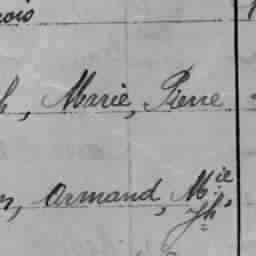 h, Marie, Pierre
n, Armand, Mie
Jh,